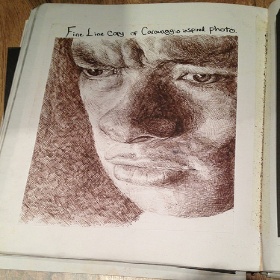 Fine Line copy of Caravaggio inspired photo.